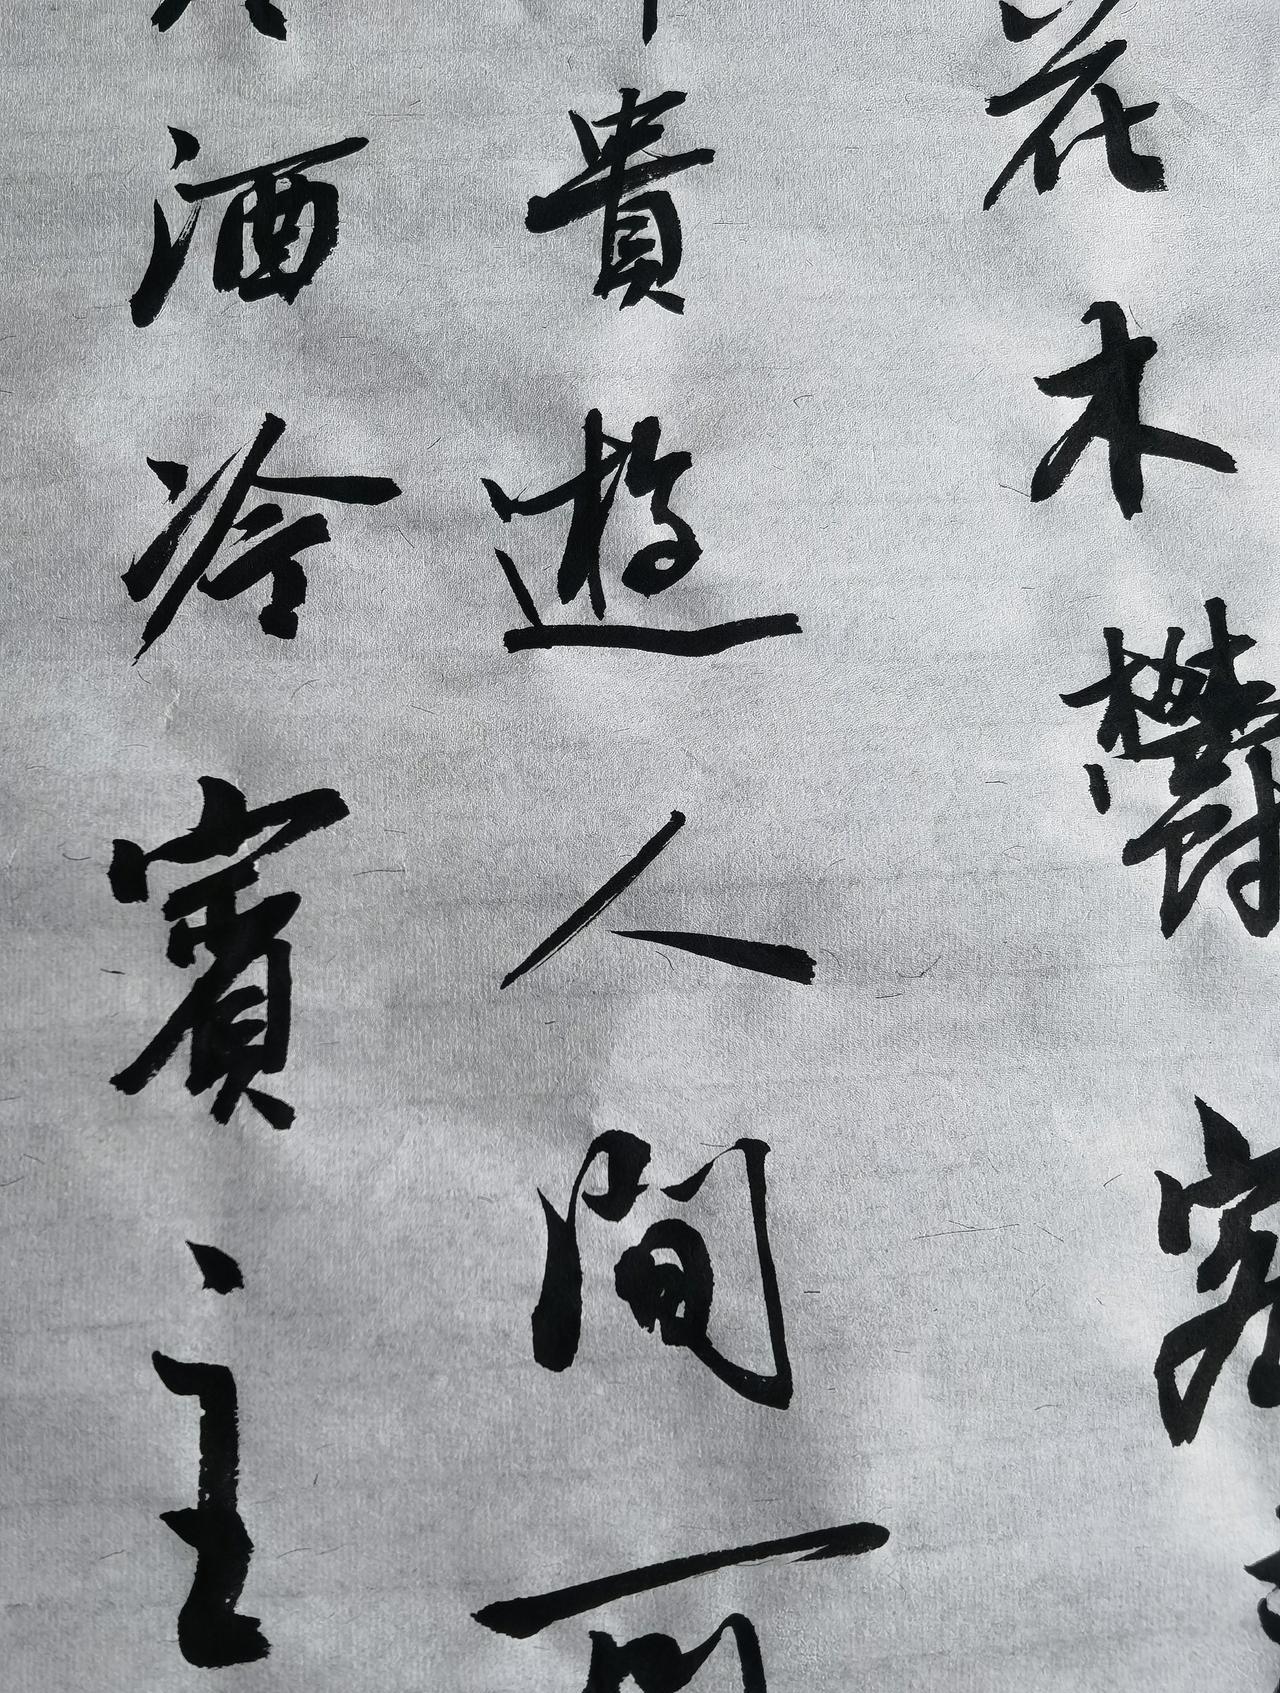 花木鬱
貴遊人間可
酒冷賓主